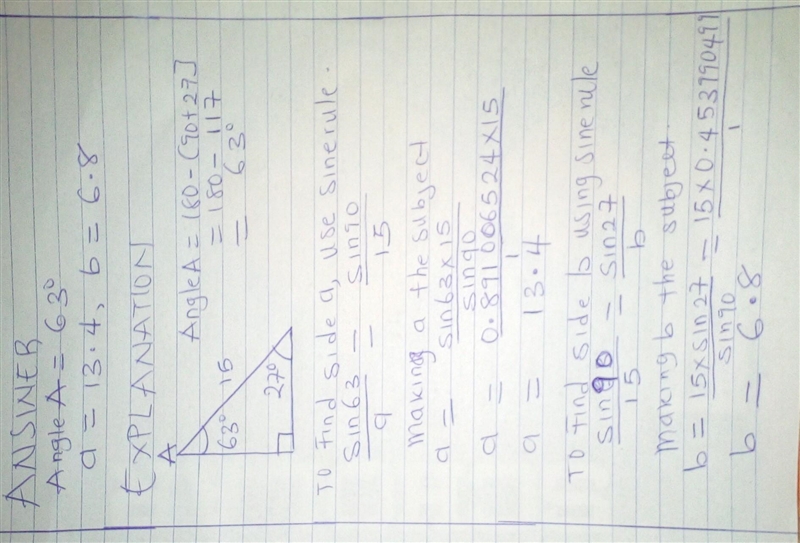 ANSWER
Angle A = 63°
a = 13.4, b = 6.8
EXPLANATION
A
63° 15
27°
Angle A = 180 - (90+27]
= 180 - 117
= 63°
To find side a, use sinerule.
Sin63 = Sin90
a 15
Making a the subject
a = sin63 x 15
sin90
a = 0.891006524 x 15
1
a = 13.4
To find side b using sinerule
Sin90 = Sin27
15 b
Making b the subject.
b = 15 x sin27 = 15 x 0.4539904
sin90 1
b = 6.8